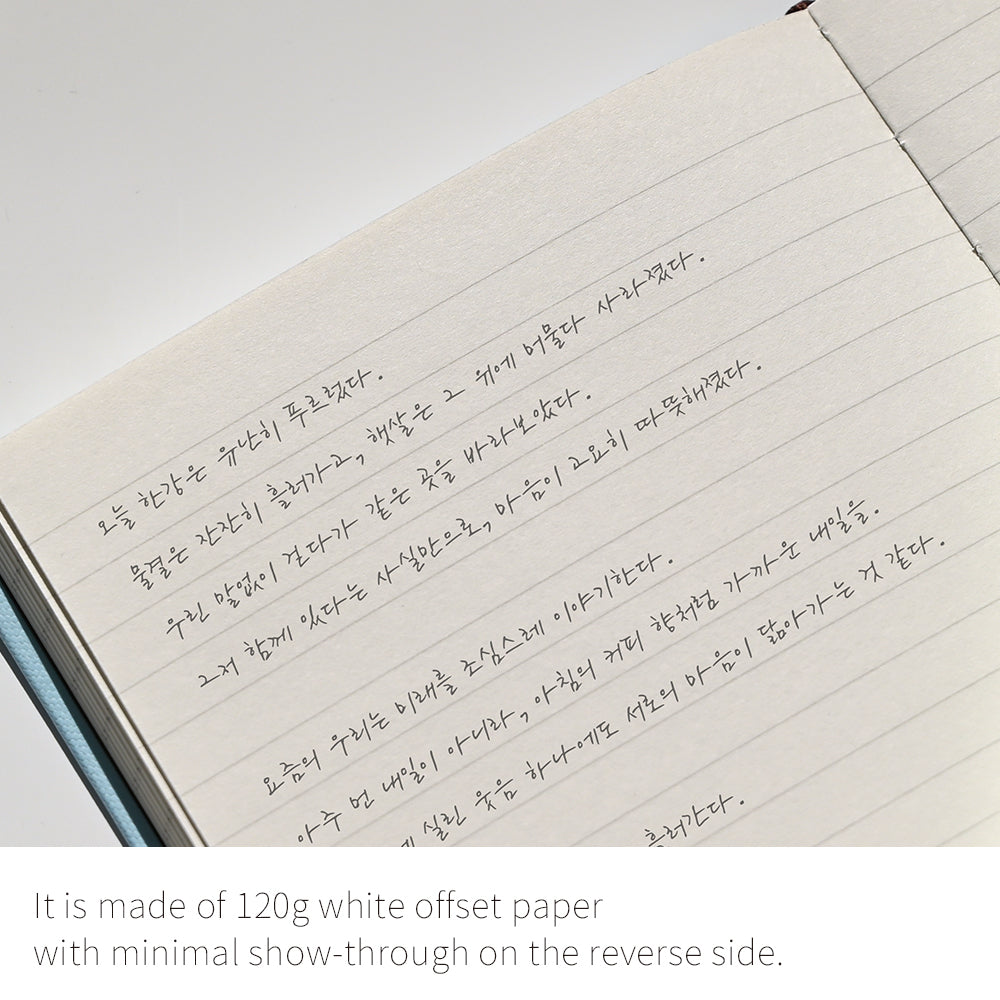 오늘 한강은 유난히 푸르렀다.
물결은 잔잔히 흘러가고, 햇살은 그 위에 머물다 사라졌다.
우린 말없이 걷다가 같은 곳을 바라보았다.
그저 함께 있다는 사실만으로, 마음이 고요히 따뜻해졌다.
요즘의 우리는 미래를 조심스레 이야기한다.
아주 먼 내일이 아니라, 아침의 커피 향처럼 가까운 내일을.
실린 웃음 하나에도 서로의 마음이 닮아가는 것 같다.
흘러간다.
It is made of 120g white offset paper
with minimal show-through on the reverse side.